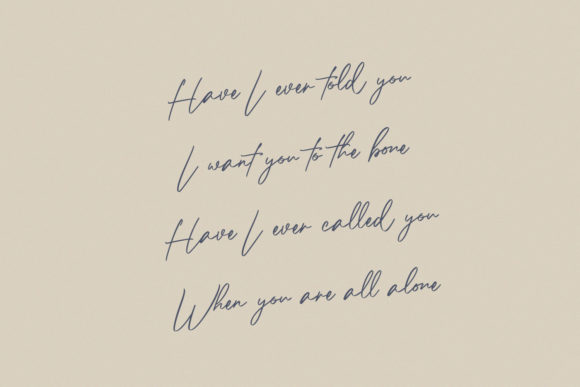 Have I ever told you
I want you to the bone
Have I ever called you
When you are all alone